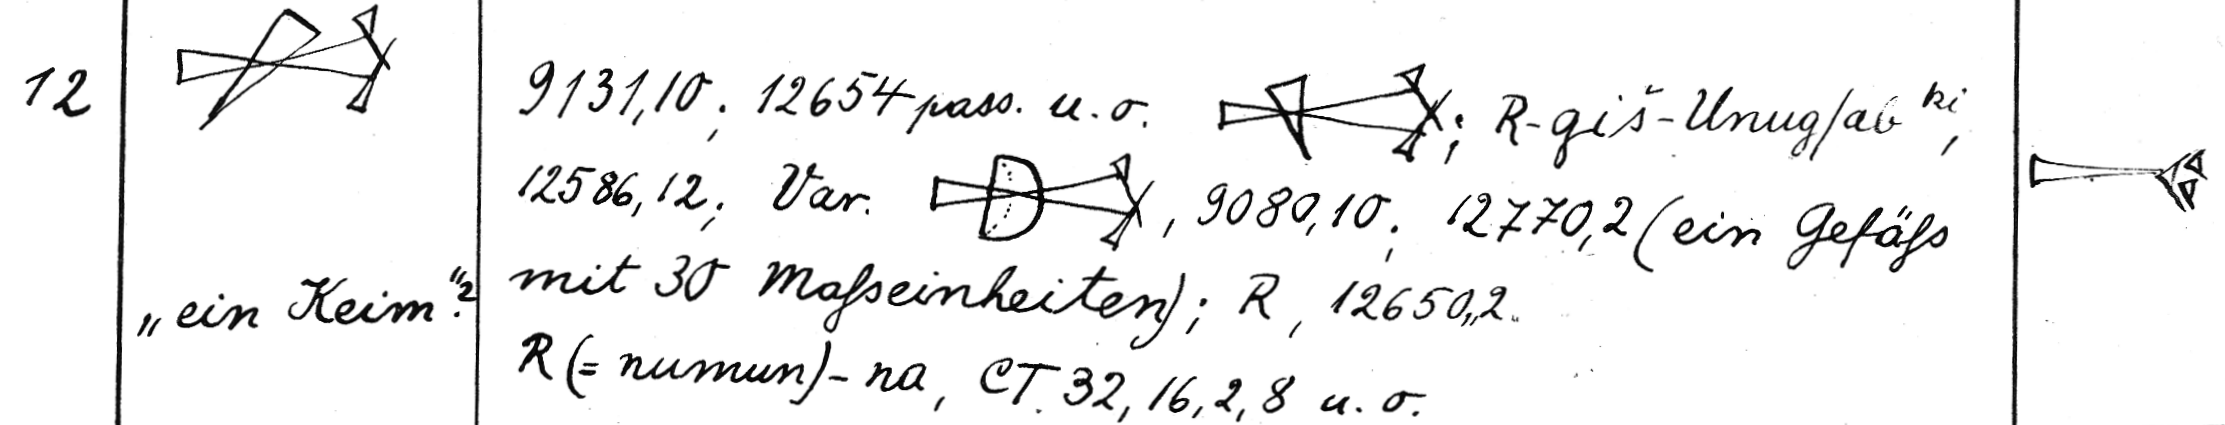 12
9131,10; 12654 pass. u. o. ; R-giš-Unug/ab ki,
12586,12; Var. , 9080,10; 12770,2 (ein Gefäſs
„ein Keim“? mit 30 Maſseinheiten); R, 12650,2.
R (= numun)-na, CT. 32, 16, 2, 8 u. o.